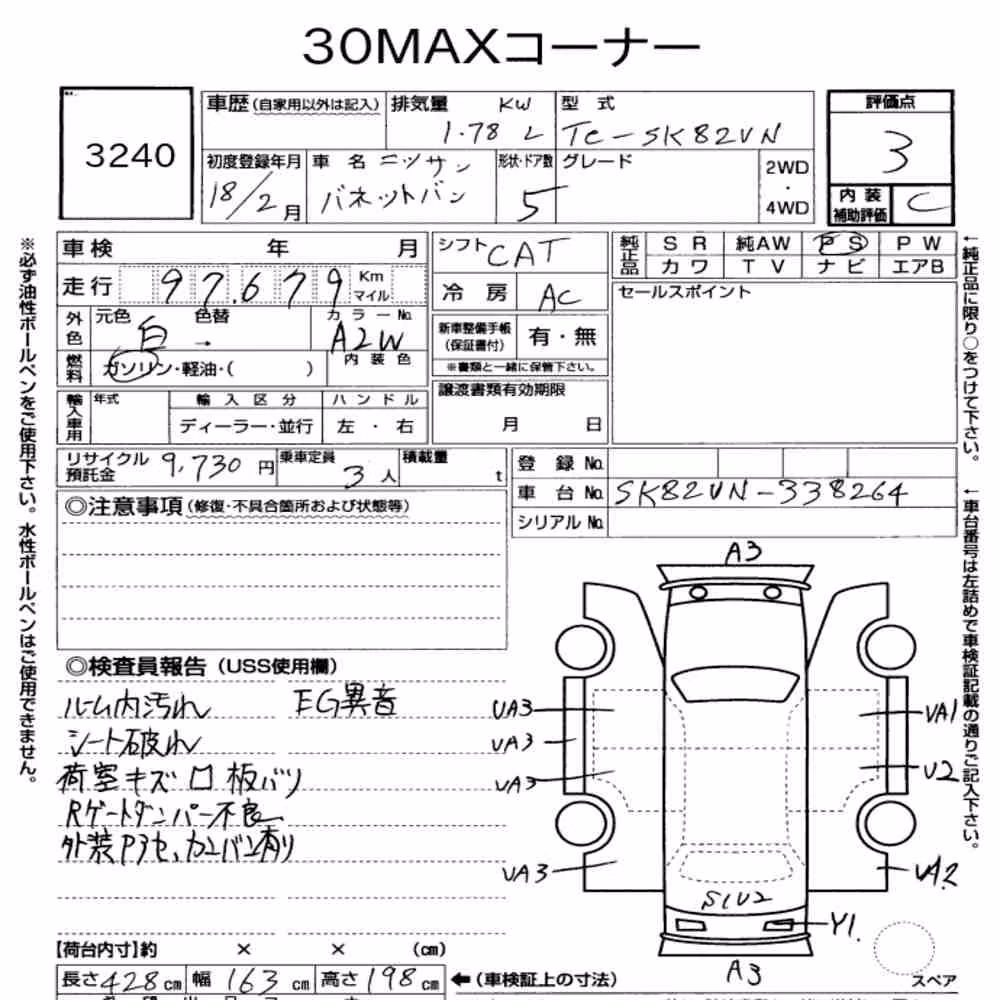 30MAXコーナー
3240
車歴(自家用以外は記入) 排気量 KW 型式 評価点
1.78 L TC-SK82VN 3
初度登録年月 車名 ニッサン 形状・ドア数 グレード 2WD
18/2月 バネットバン 5 ・ 4WD
内装補助評価 C
車検 年 月 シフト CAT 純正品 SR 純AW PS PW
カワ TV ナビ エアB
走行 97,679 Km マイル 冷房 AC セールスポイント
外色 元色 白 色替 → カラーNo. A2W 新車整備手帳(保証書付) 有・無
※書類と一緒に保管下さい。
燃料 ガソリン・軽油・( ) 内装色
譲渡書類有効期限 月 日
輸入車用 年式 輸入区分 ハンドル
ディーラー・並行 左・右
リサイクル預託金 9,730円 乗車定員 3人 積載量 t 登録No.
車台No. SK82VN-338264
シリアルNo.
◎注意事項(修復・不具合箇所および状態等)
◎検査員報告(USS使用欄)
ルーム内汚れ EG異音
シート破れ
荷室キズ ロ 板バリ
Rゲートダンパー不良
外装P3セ、カンバン有り
A3
UA3 UA1
UA3
UA3 U2
UA3 UA2
S1U2
Y1.
A3
スペア
【荷台内寸】約 × × (cm)
長さ428cm 幅163cm 高さ198cm ←(車検証上の寸法)
※必ず油性ボールペンをご使用下さい。水性ボールペンはご使用できません。
←純正品に限り○をつけて下さい。
←車台番号は左詰めで車検証記載の通りご記入下さい。